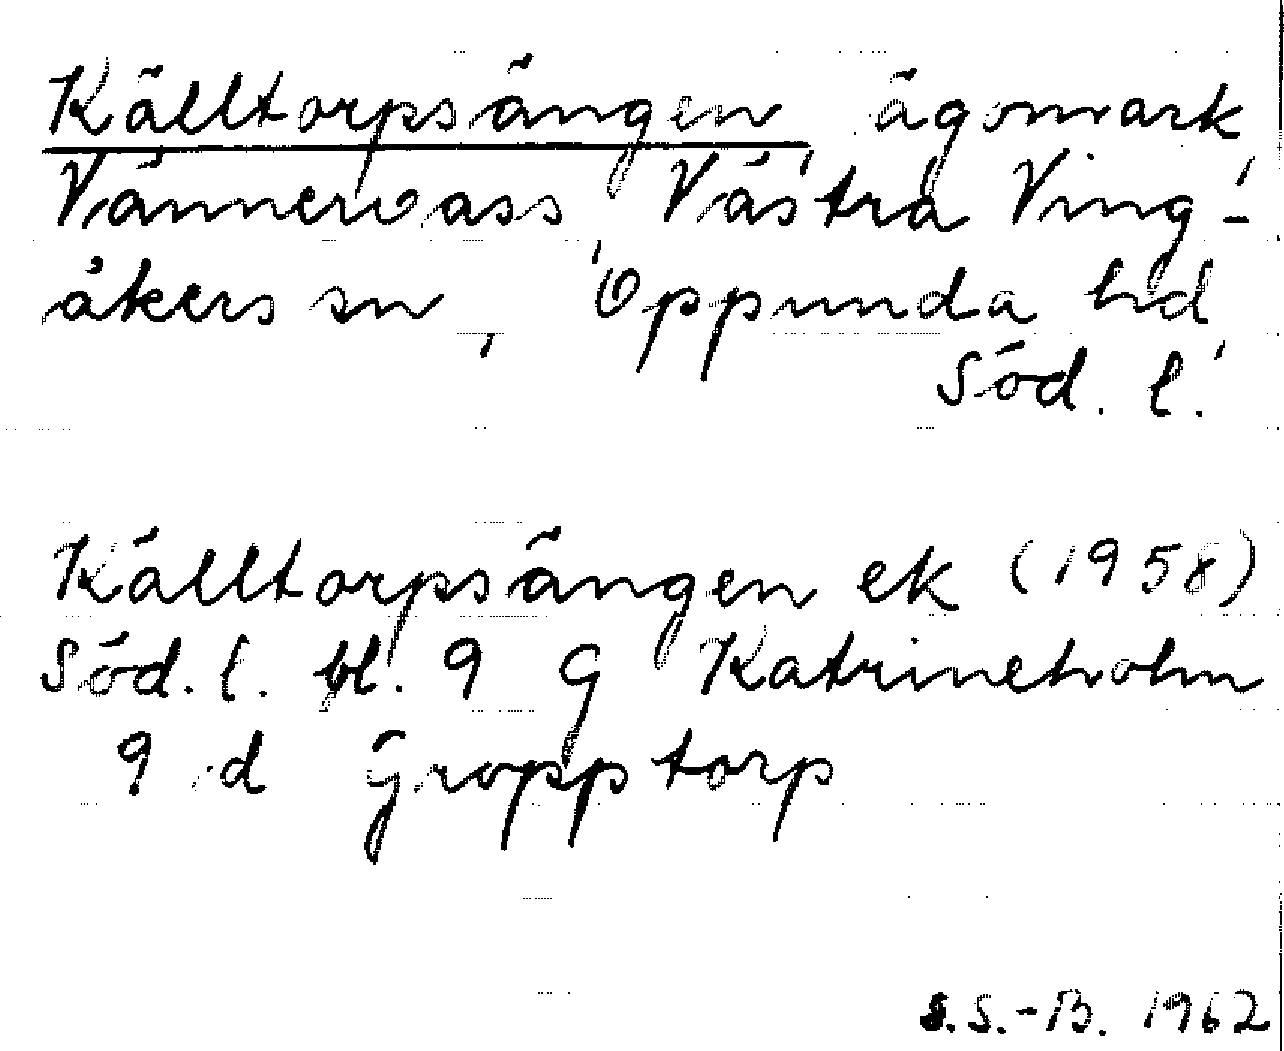 Källtorpsängen ägomark
Vännevass, Västra Ving-
åkers sn, Oppunda hd,
Söd. l.
Källtorpsängen ek (1958)
Söd. l. bl. 9 G Katrineholm
9 d Gropptorp
S.S.-B. 1962